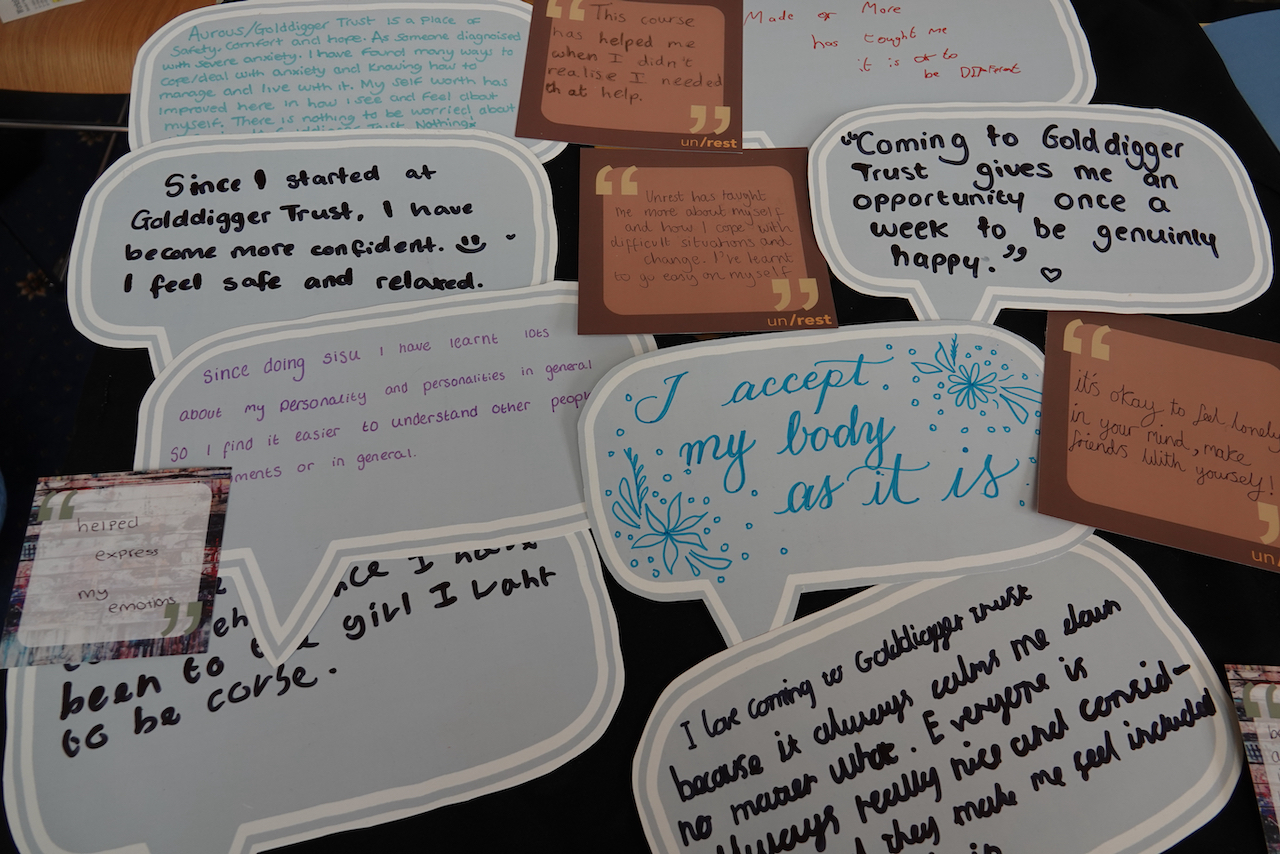 Aurous/Golddigger Trust is a place of
safety, comfort and hope. As someone diagnoised
with severe anxiety. I have found many ways to
cope/deal with anxiety and knowing how to
manage and live with it. My self worth has
improved here in how I see and feel about
myself. There is nothing to be worried about
Golddigger Trust. Nothing!
This course
has helped me
when I didn't
realise I needed
that help.
un/rest
Made or More
has tought me
it is ok to
be Different
Since I started at
Golddigger Trust, I have
become more confident.
I feel safe and relaxed.
Unrest has taught
me more about myself
and how I cope with
difficult situations and
change. I've learnt
to go easy on myself
un/rest
"Coming to Golddigger
Trust gives me an
opportunity once a
week to be genuinly
happy."
since doing sisu I have learnt lots
about my personality and personalities in general
so I find it easier to understand other
ments or in general.
I accept
my body
as it is
it's okay to feel lonely
in your mind, make
friends with yourself!
un/
helped
express
my
emotions
I have
girl I Laht
been to
to be corse.
I love coming to Golddigger trust
because it always calms me down
no matter what. Everyone is
always really nice and consid-
they make me feel included